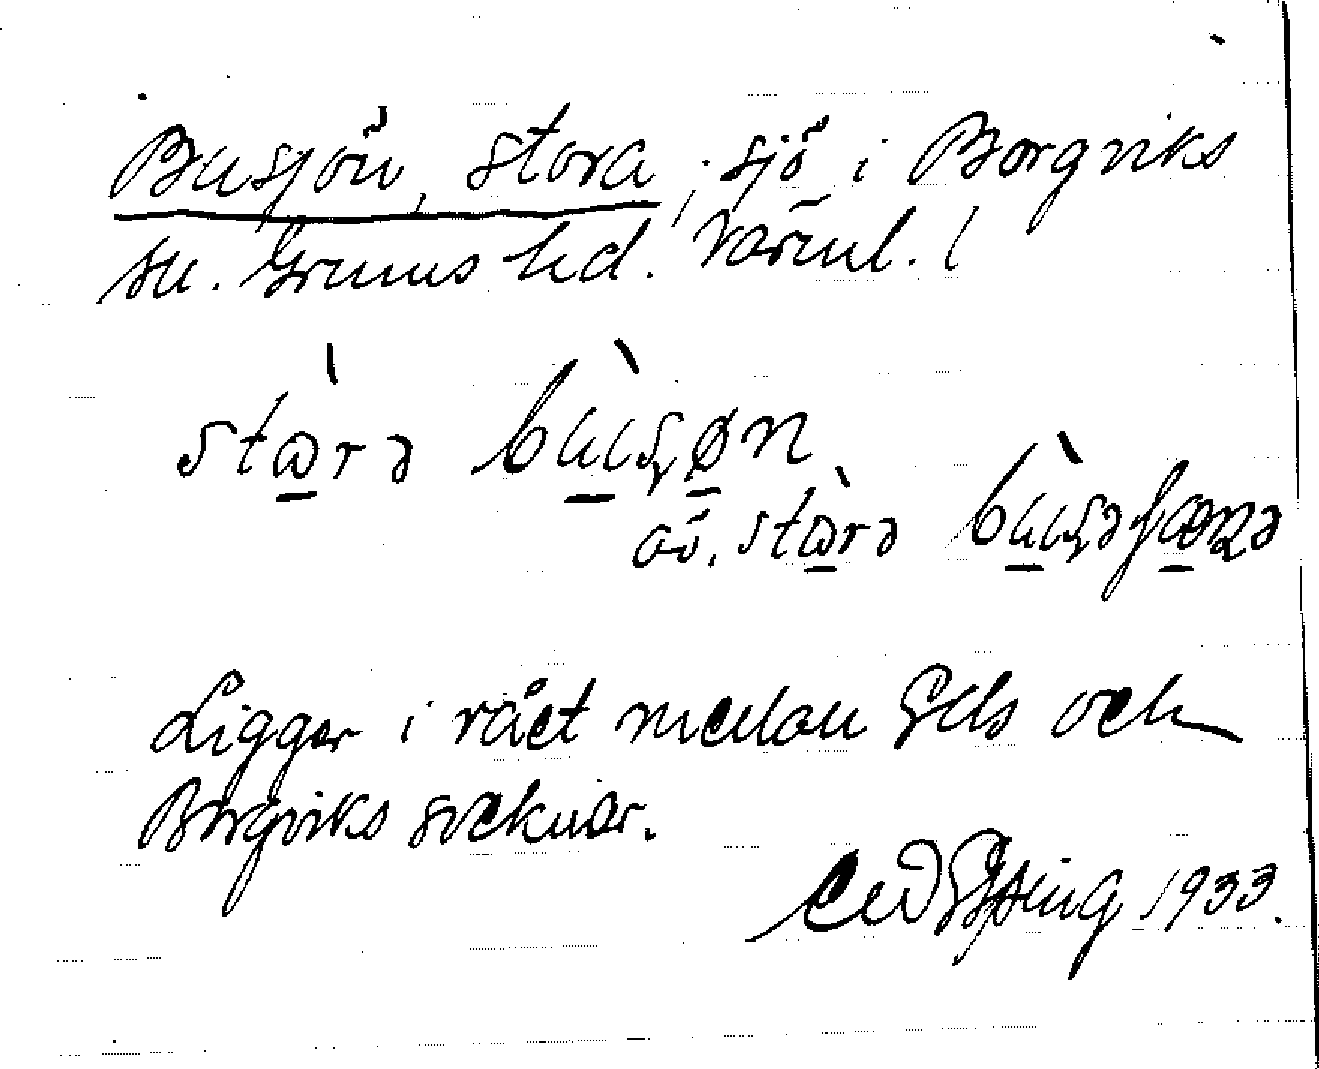 Busjön, Stora, sjö i Borgviks
sn. Grums hd. Värml. l
stωrə bùsøn
av. stωrə bùsəʃænə
Ligger i rået mellan Eds och
Borgviks socknar.
1933.